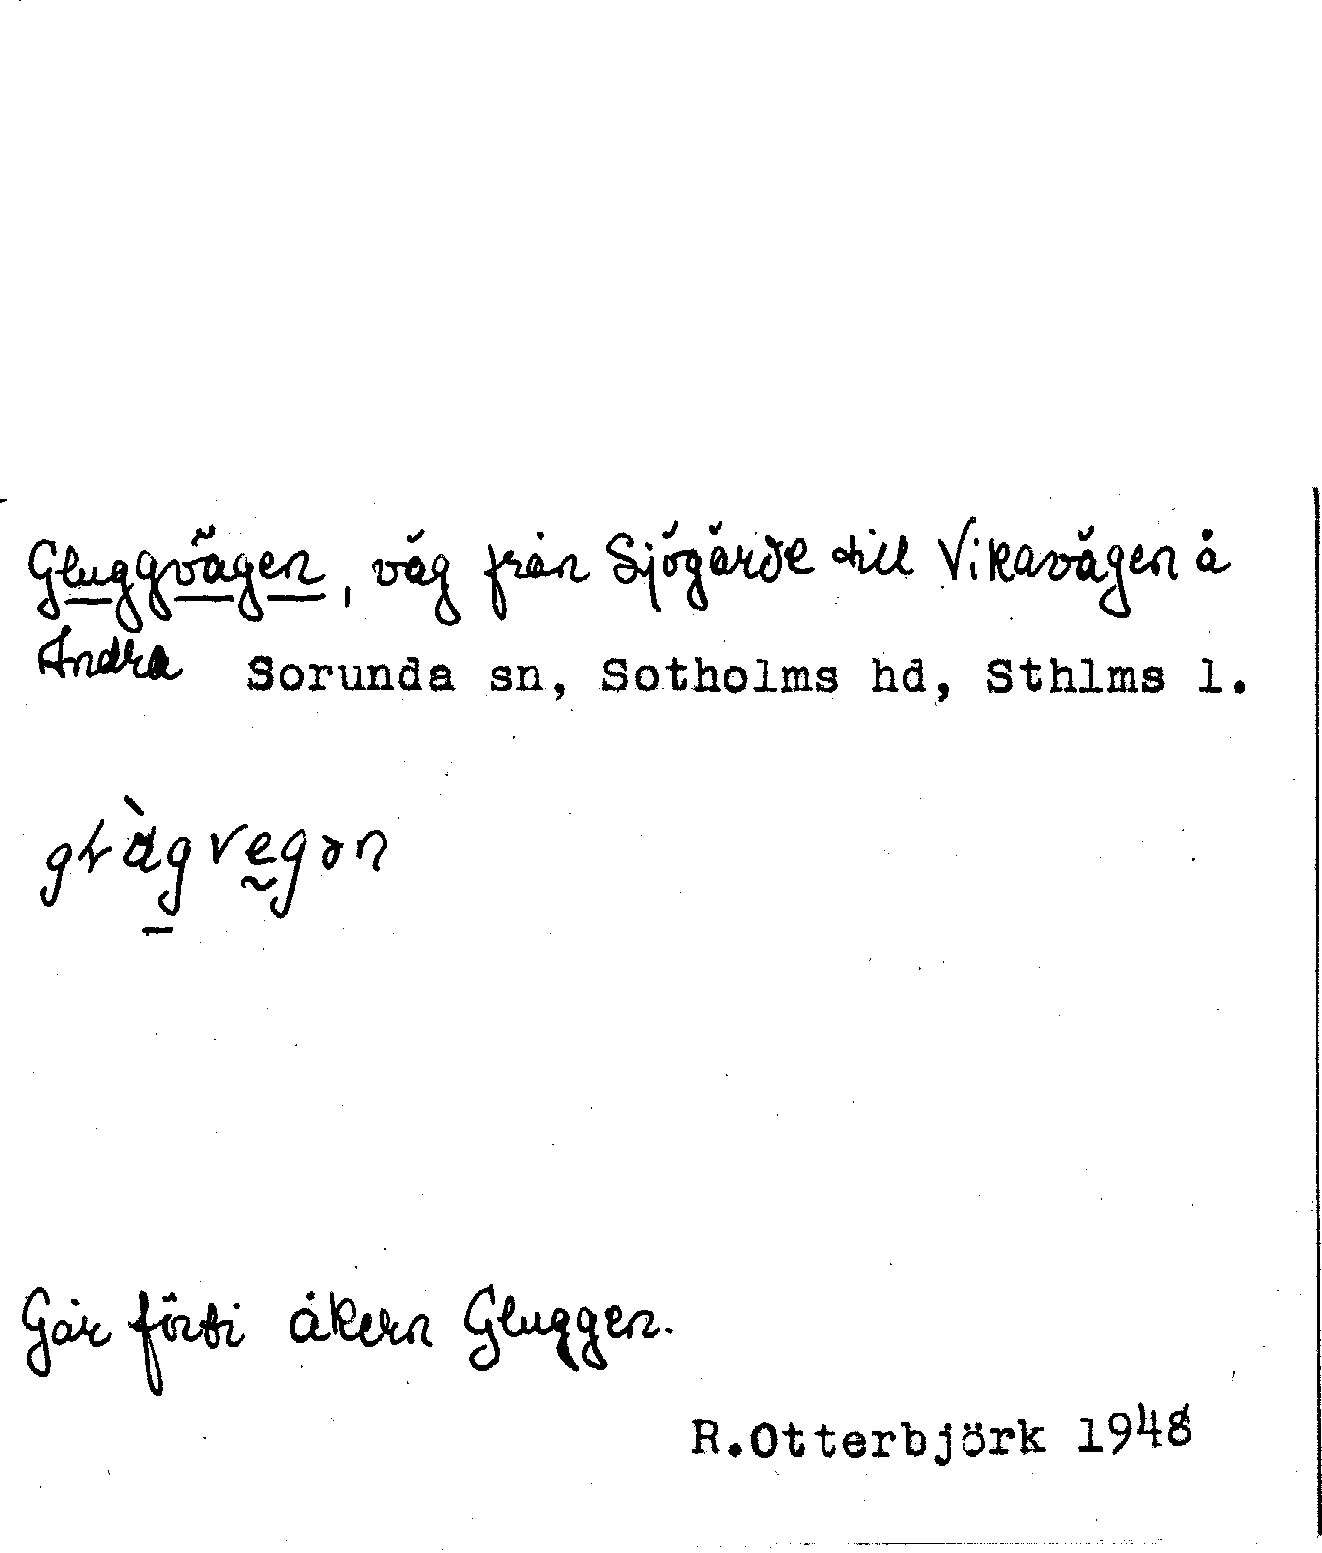 Gluggvägen, väg från Sjögärde till Vikavägen å
Andra Sorunda sn, Sotholms hd, Sthlms l.
Går förbi åkern Gluggen.
R.Otterbjörk 1948